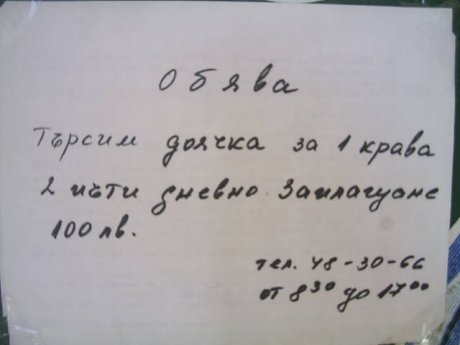 Обява
Търсим доячка за 1 крава
2 пъти дневно. Заплащане
100 лв.
тел. 48-30-66
от 8³⁰ до 17⁰⁰